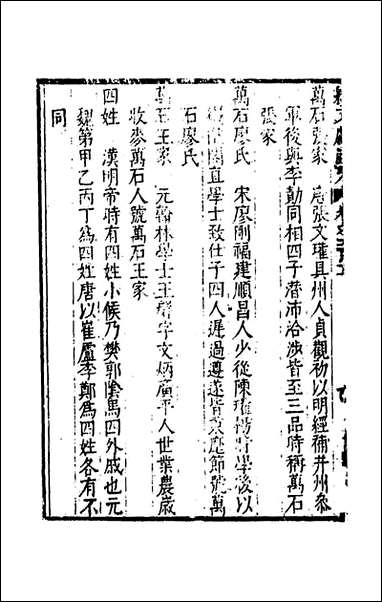 萬石張家　唐張文瓘貝州人貞觀初以明經補并州參
軍後與李勣同相四子潛沛洽涉皆至三品時稱萬石
張家
萬石廖氏　宋廖剛福建順昌人少從陳瓘楊時學後以
直學士致仕子四人遲過遵遂皆秉麾節號萬
石廖氏
萬石王家　元翰林學士王磐字文炳廣平人世業農歲
收麥萬石人號萬石王家
四姓　漢明帝時有四姓小候乃樊郭陰馬四外戚也元
魏第甲乙丙丁為四姓唐以崔盧李鄭為四姓各有不
同